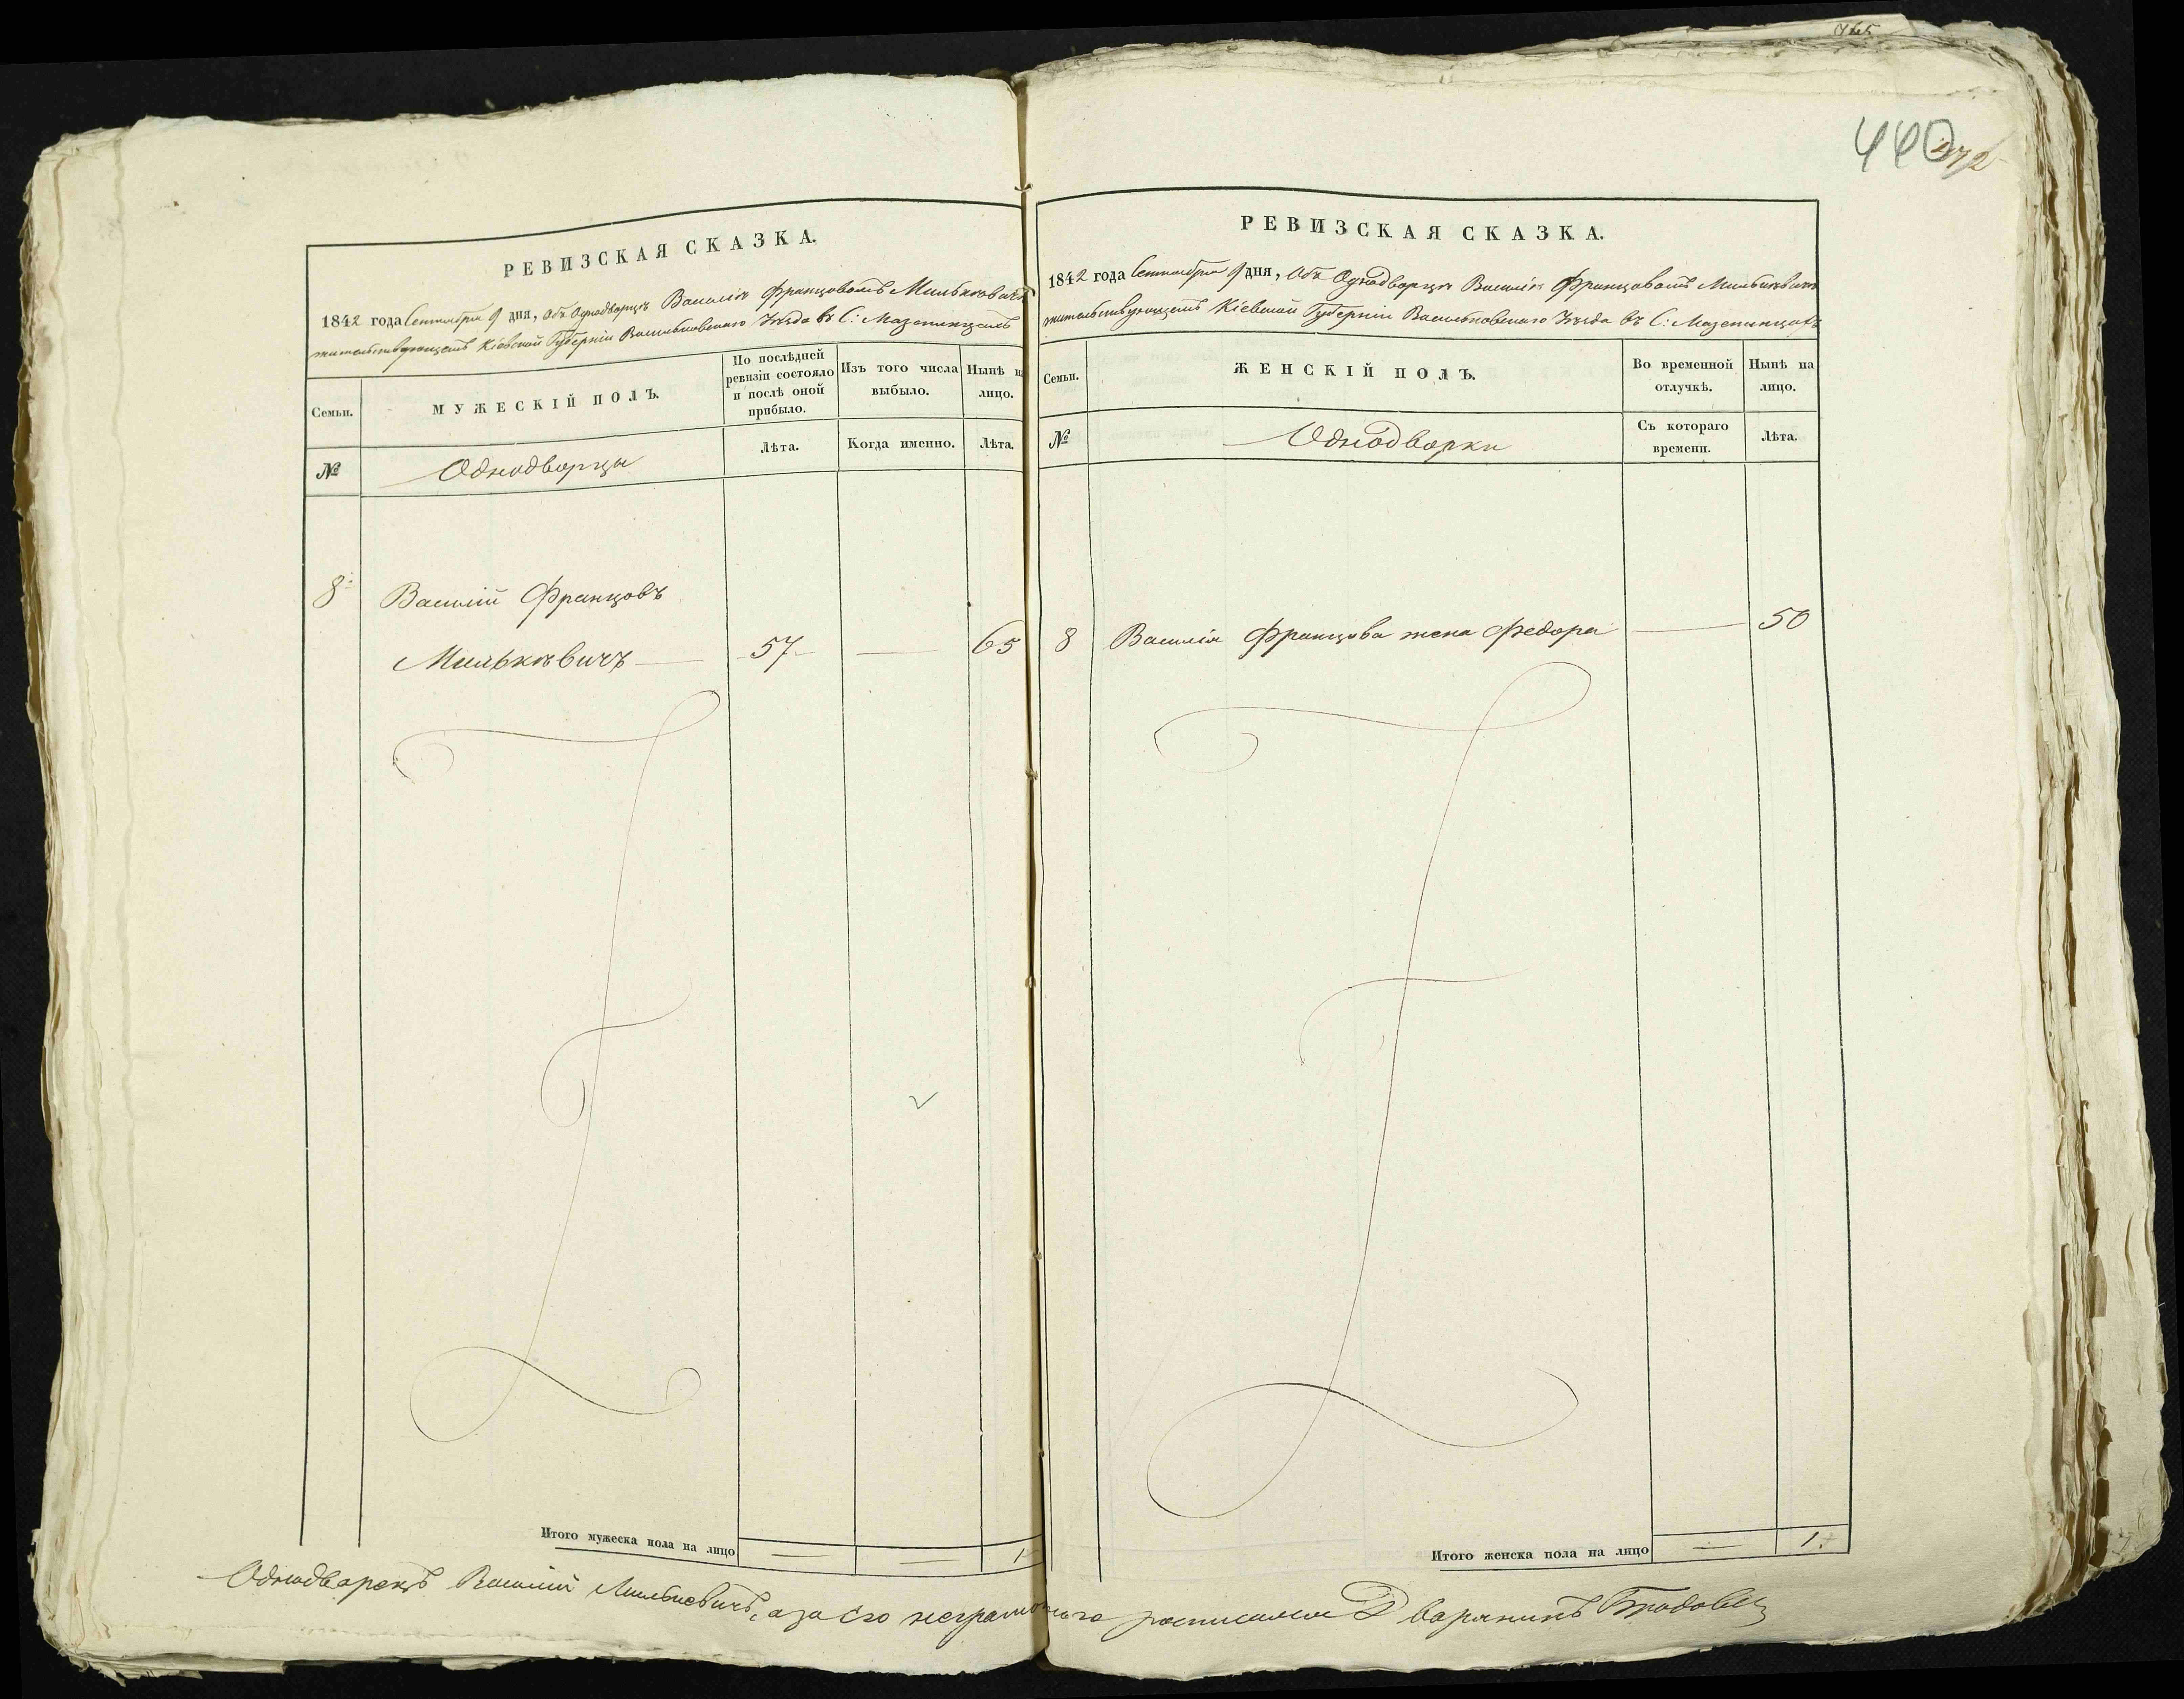 440
РЕВИЗСКАЯ СКАЗКА.
1842 года Сентября 9 дня, объ Однодворцѣ Василіи Францовомъ Мильковичѣ
жительствующемъ Кіевской Губерніи Васильковскаго Уѣзда въ С: Мазепинцахъ
Семьи.
МУЖЕСКІЙ ПОЛЪ.
По послѣдней ревизіи состояло и послѣ оной прибыло.
Изъ того числа выбыло.
Нынѣ на лицо.
№
Однодворцы
Лѣта.
Когда именно.
Лѣта.
8
Василій Францовъ
Мильковичъ 57 — 65
Итого мужеска пола на лицо — — 1
РЕВИЗСКАЯ СКАЗКА.
1842 года Сентября 9 дня, объ Однодворцѣ Василіи Францовомъ Мильковичѣ
жительствующемъ Кіевской Губерніи Васильковскаго Уѣзда въ С: Мазепинцахъ
Семьи.
ЖЕНСКІЙ ПОЛЪ.
Во временной отлучкѣ.
Нынѣ на лицо.
№
Однодворки
Съ котораго времени.
Лѣта.
8 Василія Францова жена Федора — 50
Итого женска пола на лицо — 1.
Однодворецъ Василій Мильковичъ, а за его неграмотнаго росписался Дворянинъ